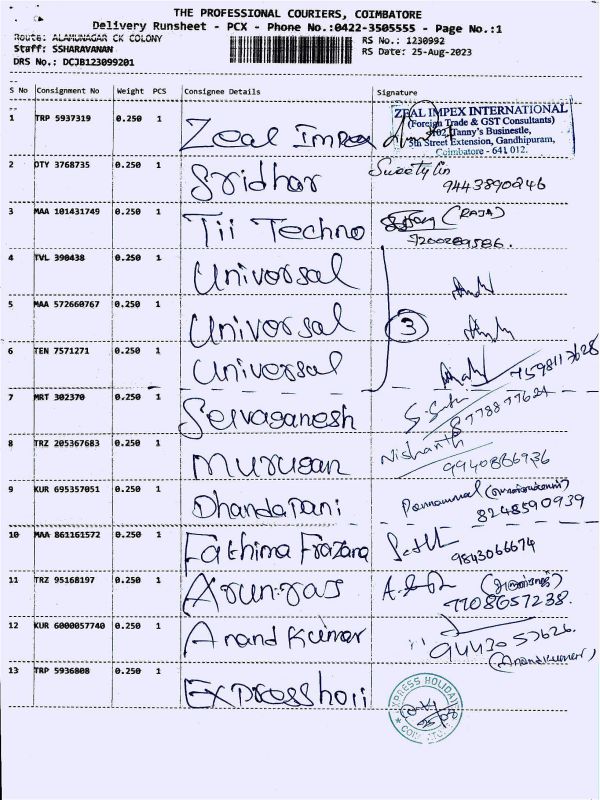 THE PROFESSIONAL COURIERS, COIMBATORE
Delivery Runsheet - PCX - Phone No.:0422-3505555 - Page No.:1
Route: ALAMUNAGAR CK COLONY
RS No.: 1230992
Staff: SSHARAVANAN
RS Date: 25-Aug-2023
DRS No.: DCJB123099201
S No Consignment No Weight PCS Consignee Details Signature
1 TRP 5937319 0.250 1 Zeal Impex
ZEAL IMPEX INTERNATIONAL
(Foreign Trade & GST Consultants)
102, Tanny's Businestle,
5th Street Extension, Gandhipuram,
Coimbatore - 641 012.
2 DTY 3768735 0.250 1 Sridhar Sweetylin
9443890846
3 MAA 101431749 0.250 1 Tii Techno (RAJA)
7200289586.
4 TVL 390438 0.250 1 Universal
5 MAA 572660767 0.250 1 Universal 3
6 TEN 7571271 0.250 1 Universal
7598117628
7 MRT 302370 0.250 1 Selvaganesh
8778877621
8 TRZ 205367683 0.250 1 Murugan Nishanth
9940886936
9 KUR 695357051 0.250 1 Dhandapani Ponnammal
8248590939
10 MAA 861161572 0.250 1 Fathima Frazana
9843066674
11 TRZ 95168197 0.250 1 Arunraj
7708657238.
12 KUR 6000057740 0.250 1 Anand Kumar
9443057626.
(Anandkumar)
13 TRP 5936808 0.250 1 Expressholi
EXPRESS HOLIDAY